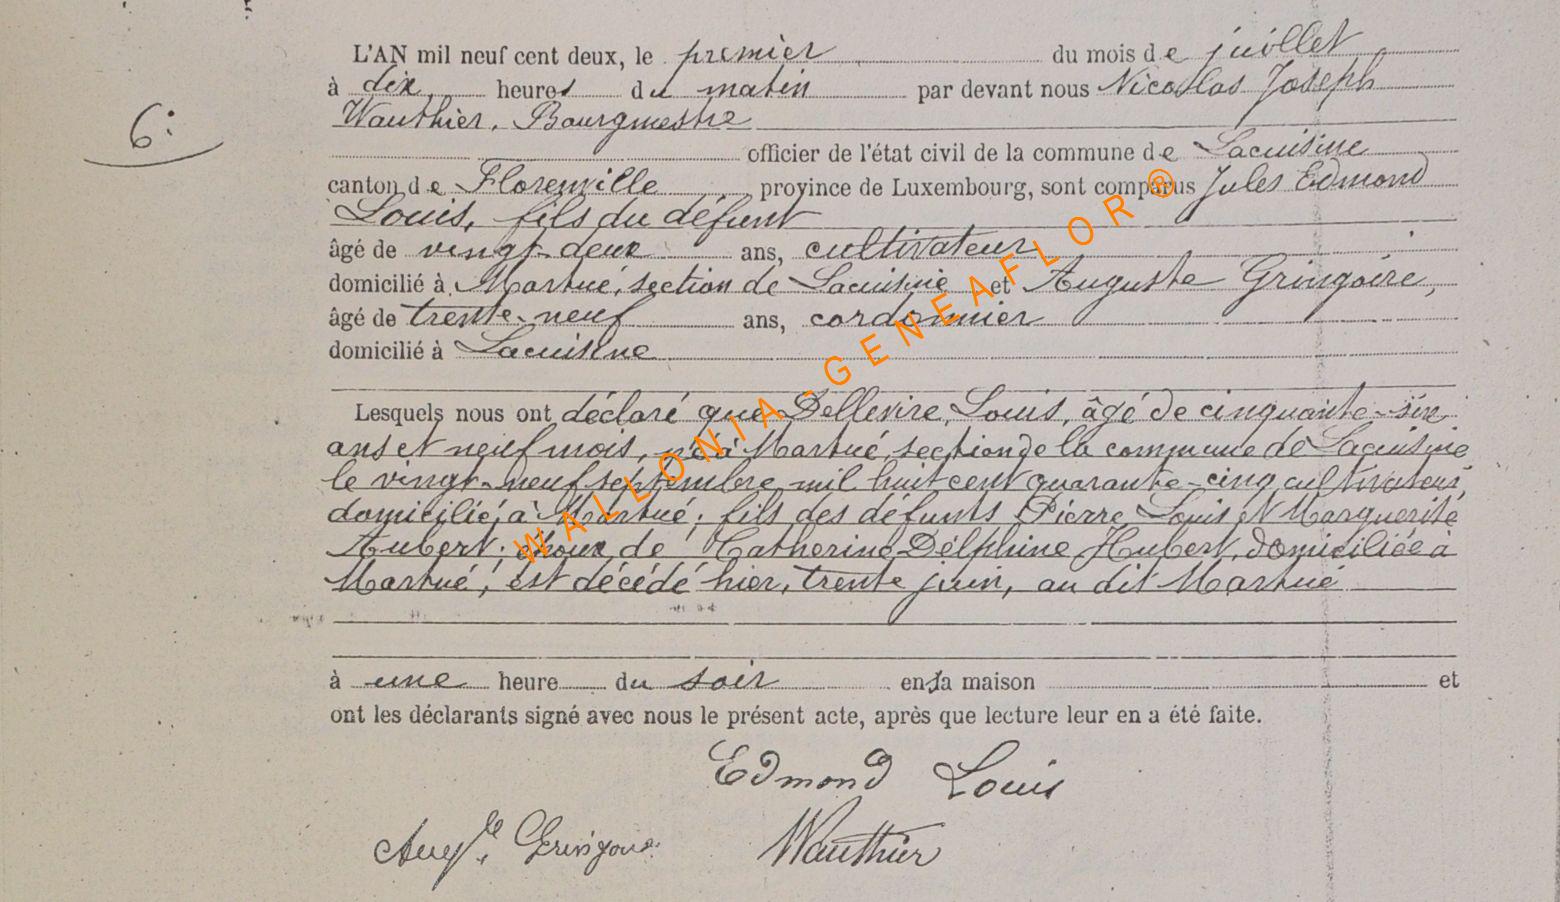 L'AN mil neuf cent deux, le premier du mois de juillet
à dix heures du matin par devant nous Nicolas Joseph
Wauthier, Bourgmestre
6:
officier de l'état civil de la commune de Lacuisine
canton de Florenville province de Luxembourg, sont comparus Jules Edmond
Louis, fils du défunt
âgé de vingt-deux ans, cultivateur
domicilié à Martué, section de Lacuisine et Auguste Gringoire,
âgé de trente-neuf ans, cordonnier
domicilié à Lacuisine
Lesquels nous ont déclaré que Dellevire, Louis, âgé de cinquante-six
ans et neuf mois, né à Martué, section de la commune de Lacuisine
le vingt-neuf septembre mil huit cent quarante-cinq, cultivateur,
domicilié à Martué, fils des défunts Pierre Louis et Marguerite
Hubert; époux de Catherine Delphine Hubert, domiciliée à
Martué, est décédé hier, trente juin, au dit Martué
à une heure du soir en sa maison et
ont les déclarants signé avec nous le présent acte, après que lecture leur en a été faite.
Edmond Louis
Aug.te Gringoire
Wauthier
WALLONIA-GENEAFLOR®